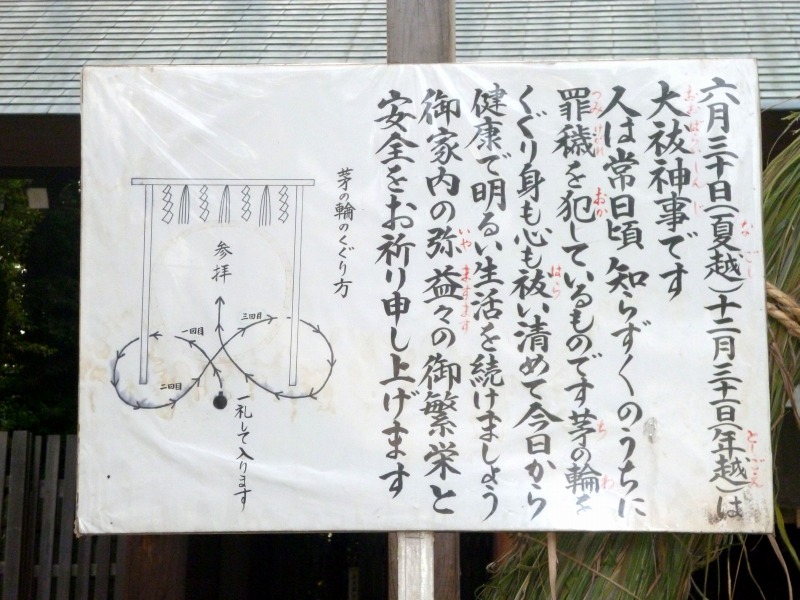 六月三十日(夏越)十二月三十一日(年越)は
なごし
としごえ
大祓神事です
おおはらへしんじ
人は常日頃知らずくのうちに
罪穢を犯しているものです茅の輪を
つみけがれ
おか
ち
わ
くぐり身も心も祓い清めて今日から
はら
健康で明るい生活を続けましょう
御家内の弥益々の御繁栄と
いや
ますます
安全をお祈り申し上げます
茅の輪のくぐり方
参拝
三回目
一回目
二回目
一礼して入ります